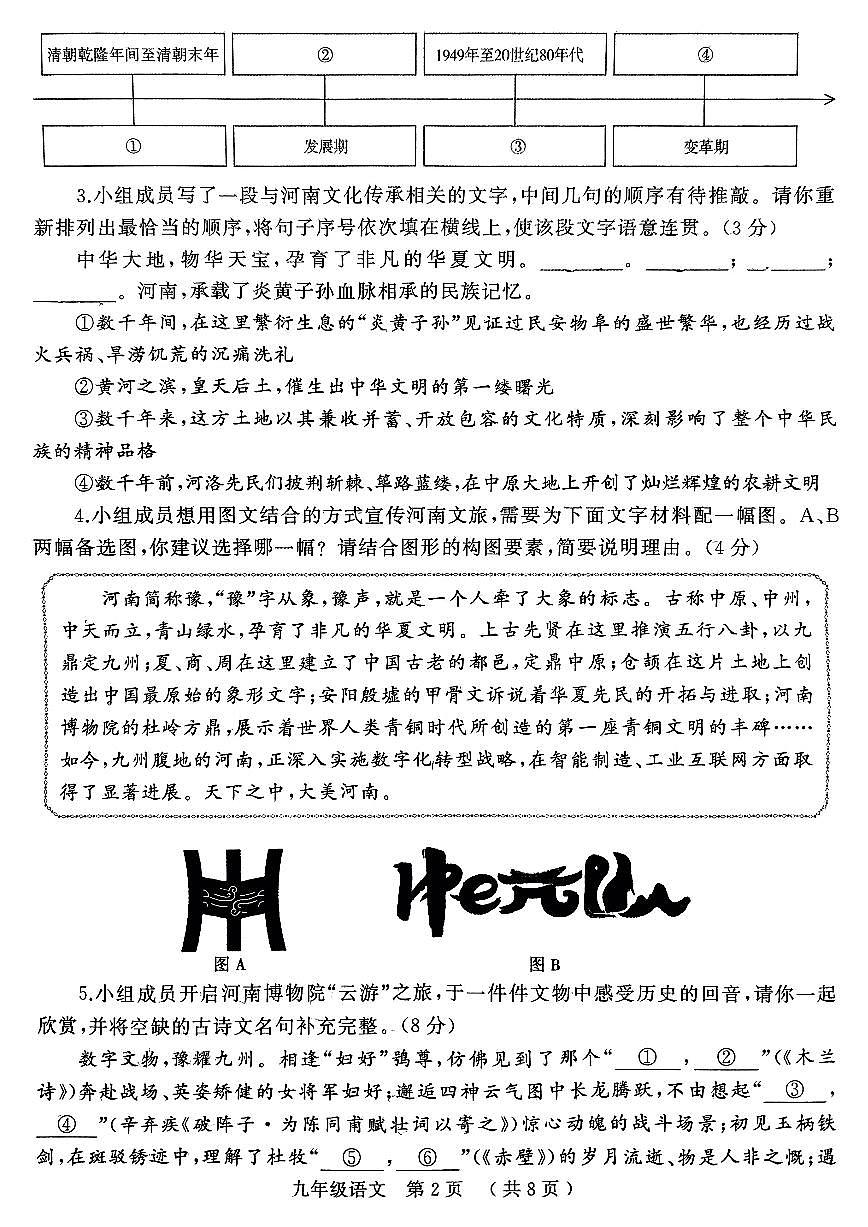 清朝乾隆年间至清朝末年 ② 1949年至20世纪80年代 ④
① 发展期 ③ 变革期
3.小组成员写了一段与河南文化传承相关的文字,中间几句的顺序有待推敲。请你重
新排列出最恰当的顺序,将句子序号依次填在横线上,使该段文字语意连贯。(3分)
中华大地,物华天宝,孕育了非凡的华夏文明。________。________;________;
________。河南,承载了炎黄子孙血脉相承的民族记忆。
①数千年间,在这里繁衍生息的“炎黄子孙”见证过民安物阜的盛世繁华,也经历过战
火兵祸、旱涝饥荒的沉痛洗礼
②黄河之滨,皇天后土,催生出中华文明的第一缕曙光
③数千年来,这方土地以其兼收并蓄、开放包容的文化特质,深刻影响了整个中华民
族的精神品格
④数千年前,河洛先民们披荆斩棘、筚路蓝缕,在中原大地上开创了灿烂辉煌的农耕文明
4.小组成员想用图文结合的方式宣传河南文旅,需要为下面文字材料配一幅图。A、B
两幅备选图,你建议选择哪一幅？请结合图形的构图要素,简要说明理由。(4分)
河南简称豫,“豫”字从象,豫声,就是一个人牵了大象的标志。古称中原、中州,
中天而立,青山绿水,孕育了非凡的华夏文明。上古先贤在这里推演五行八卦,以九
鼎定九州;夏、商、周在这里建立了中国古老的都邑,定鼎中原;仓颉在这片土地上创
造出中国最原始的象形文字;安阳殷墟的甲骨文诉说着华夏先民的开拓与进取;河南
博物院的杜岭方鼎,展示着世界人类青铜时代所创造的第一座青铜文明的丰碑……
如今,九州腹地的河南,正深入实施数字化转型战略,在智能制造、工业互联网方面取
得了显著进展。天下之中,大美河南。
图A 图B
5.小组成员开启河南博物院“云游”之旅,于一件件文物中感受历史的回音,请你一起
欣赏,并将空缺的古诗文名句补充完整。(8分)
数字文物,豫耀九州。相逢“妇好”鸮尊,仿佛见到了那个“ ① , ② ”(《木兰
诗》)奔赴战场、英姿矫健的女将军妇好;邂逅四神云气图中长龙腾跃,不由想起“ ③ ,
④ ”(辛弃疾《破阵子·为陈同甫赋壮词以寄之》)惊心动魄的战斗场景;初见玉柄铁
剑,在斑驳锈迹中,理解了杜牧“ ⑤ , ⑥ ”(《赤壁》)的岁月流逝、物是人非之慨;遇
九年级语文 第2页 (共8页)